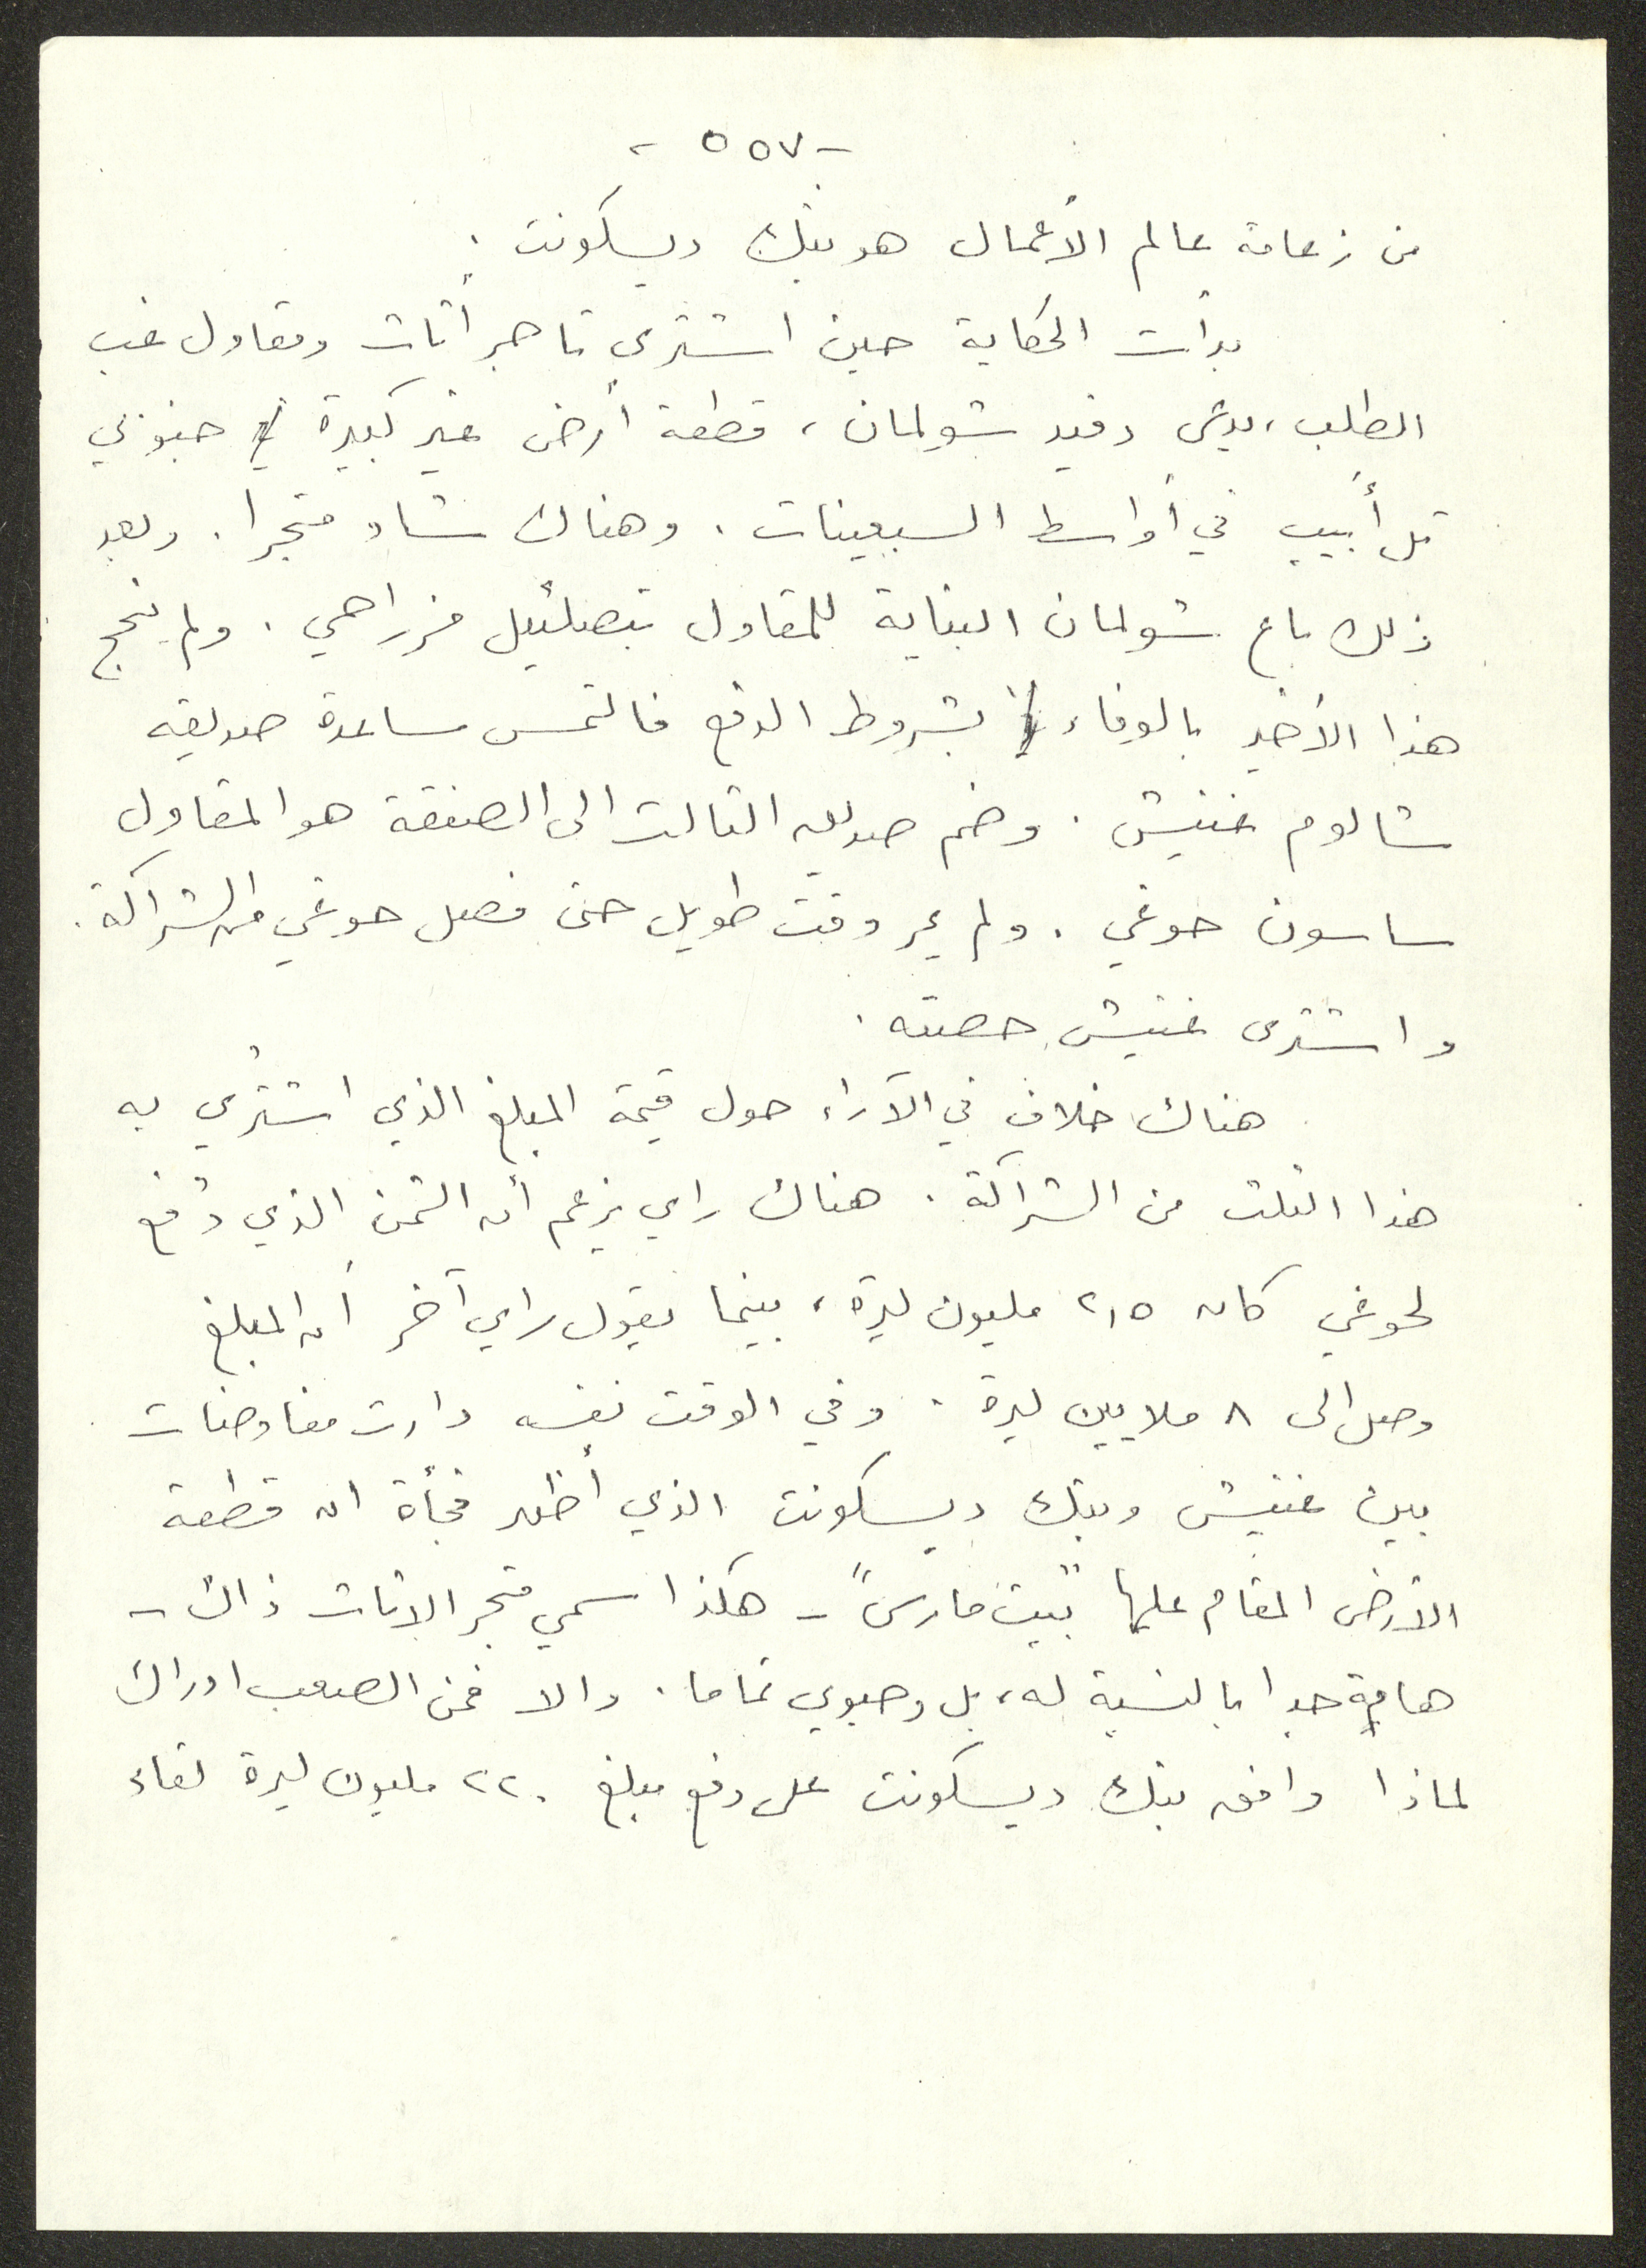 - ٥٥٧ -
من زعامة عالم الأعمال هو بنك ديسكونت .
بدأت الحكاية حين اشترى تاجر أثاث ومقاول غب
الطلب، يدعى دفيد شولمان، قطعة أرض غير كبيرة في جنوبي
تل أبيب في أواسط السبعينات. وهناك شاد متجرا. وبعد
ذلك باع شولمان البناية للمقاول بتصلئيل مزراحي. ولم ينجح
هذا الأخير بالوفاء بشروط الدفع فالتمس مساعدة صديقه
شالوم غنيش. وضم صديقه الثالث الى الصفقة هو المقاول
ساسون حوغي. ولم يمر وقت طويل حتى فصل حوغي من الشراكة.
واشترى غنيش حصته.
هناك خلاف في الآراء حول قيمة المبلغ الذي اشتُري به
هذا الثلث من الشراكة. هناك راي يزعم أن الثمن الذي دُفع
لحوغي كان ٢,٥ مليون ليرة، بينما يقول راي آخر أن المبلغ
وصل الى ٨ ملايين ليرة. وفي الوقت نفسه دارت مفاوضات
بين غنيش وبنك ديسكونت الذي أظهر فجأة ان قطعة
الأرض المقام عليها "بيت مارس" - هكذا سمي متجر الاثاث ذاك -
هامة جدا بالنسبة له، بل وحيوي تماما. والا فمن الصعب ادراك
لماذا وافق بنك ديسكونت على دفع مبلغ ٢٢٠ مليون ليرة لقاء